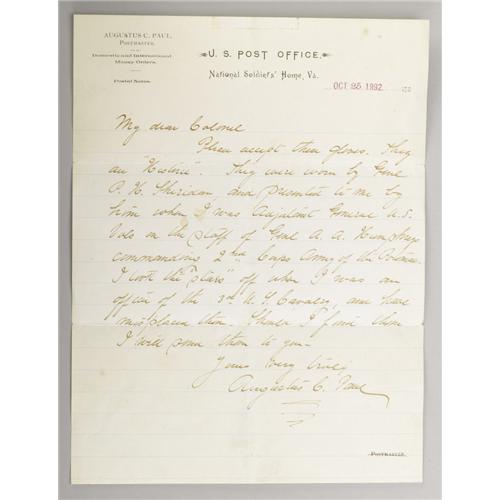 AUGUSTUS C. PAUL,
POSTMASTER.
Domestic and International
Money Orders.
Postal Notes.
U. S. POST OFFICE.
National Soldiers' Home, Va.
OCT 25 1892
My dear Colonel
Please accept these gloves. They
are "Historic". They were worn by Genl
P. H. Sheridan and presented to me by
him when I was Adjutant General U.S.
Vols on the staff of Genl A. A. Humphreys
commanding 2nd Corps Army of the Potomac.
I took the "stars" off when I was an
officer of the 3rd U.S Cavalry, and have
misplaced them. Should I find them
I will send them to you-
Yours very truly
Augustus C. Paul
POSTMASTER.